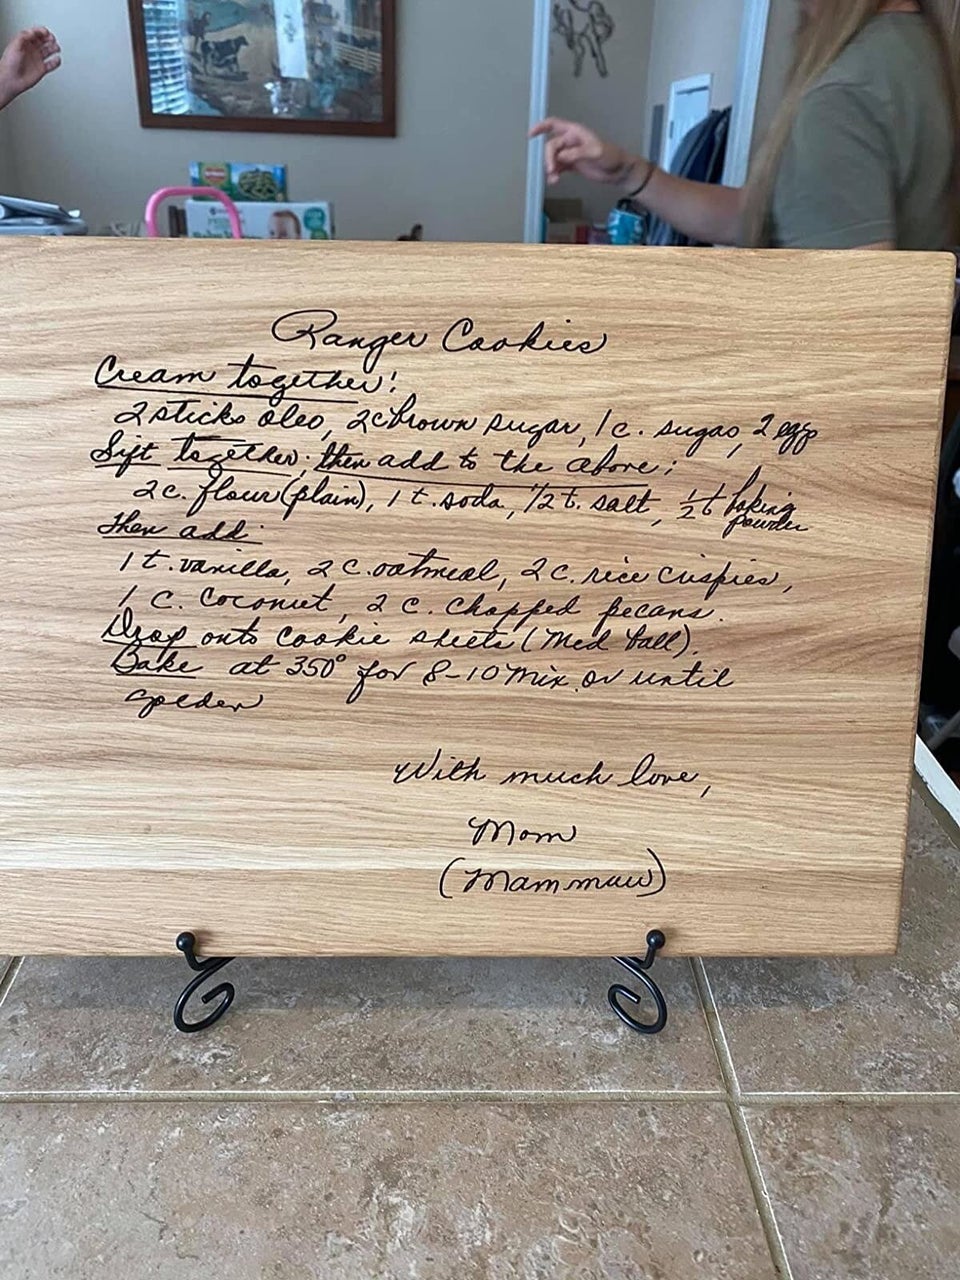 Ranger Cookies
Cream together:
2 sticks oleo, 2c brown sugar, 1 c. sugar, 2 eggs
Sift together; then add to the above:
2 c. flour (plain), 1 t. soda, 1/2 t. salt, 1/2 t baking
powder
then add:
1 t. vanilla, 2 c. oatmeal, 2 c. rice crispies,
1 c. coconut, 2 c. chopped pecans.
Drop onto cookie sheets (med ball).
Bake at 350° for 8-10 min. or until
golden
With much love,
Mom
(Mammaw)